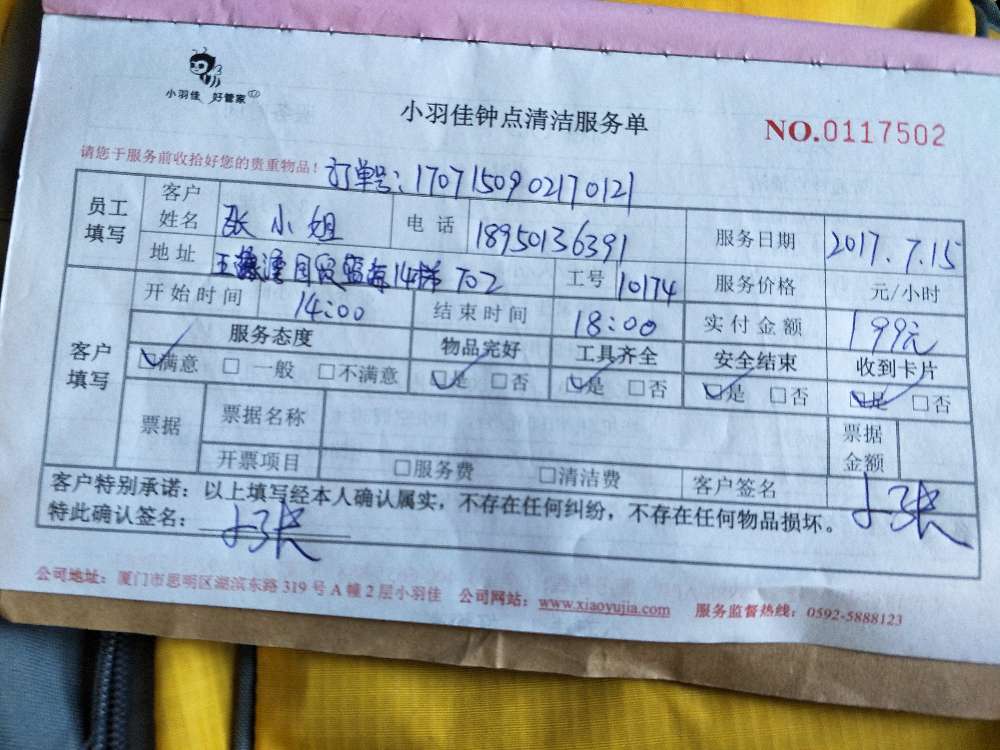 小羽佳 好管家
小羽佳钟点清洁服务单
NO.0117502
请您于服务前收拾好您的贵重物品!
订单号:1707150902170121
员工填写 客户姓名 张小姐 电话 18950136391 服务日期 2017.7.15
地址 14梯702 工号 10174 服务价格 元/小时
客户填写 开始时间 14:00 结束时间 18:00 实付金额 199元
服务态度 物品完好 工具齐全 安全结束 收到卡片
☑满意 □一般 □不满意 ☑是 □否 ☑是 □否 ☑是 □否 ☑是 □否
票据 票据名称 票据金额
开票项目 □服务费 □清洁费 客户签名
客户特别承诺:以上填写经本人确认属实,不存在任何纠纷,不存在任何物品损坏。
特此确认签名:
公司地址:厦门市思明区湖滨东路319号A幢2层小羽佳 公司网站:www.xiaoyujia.com 服务监督热线:0592-5888123